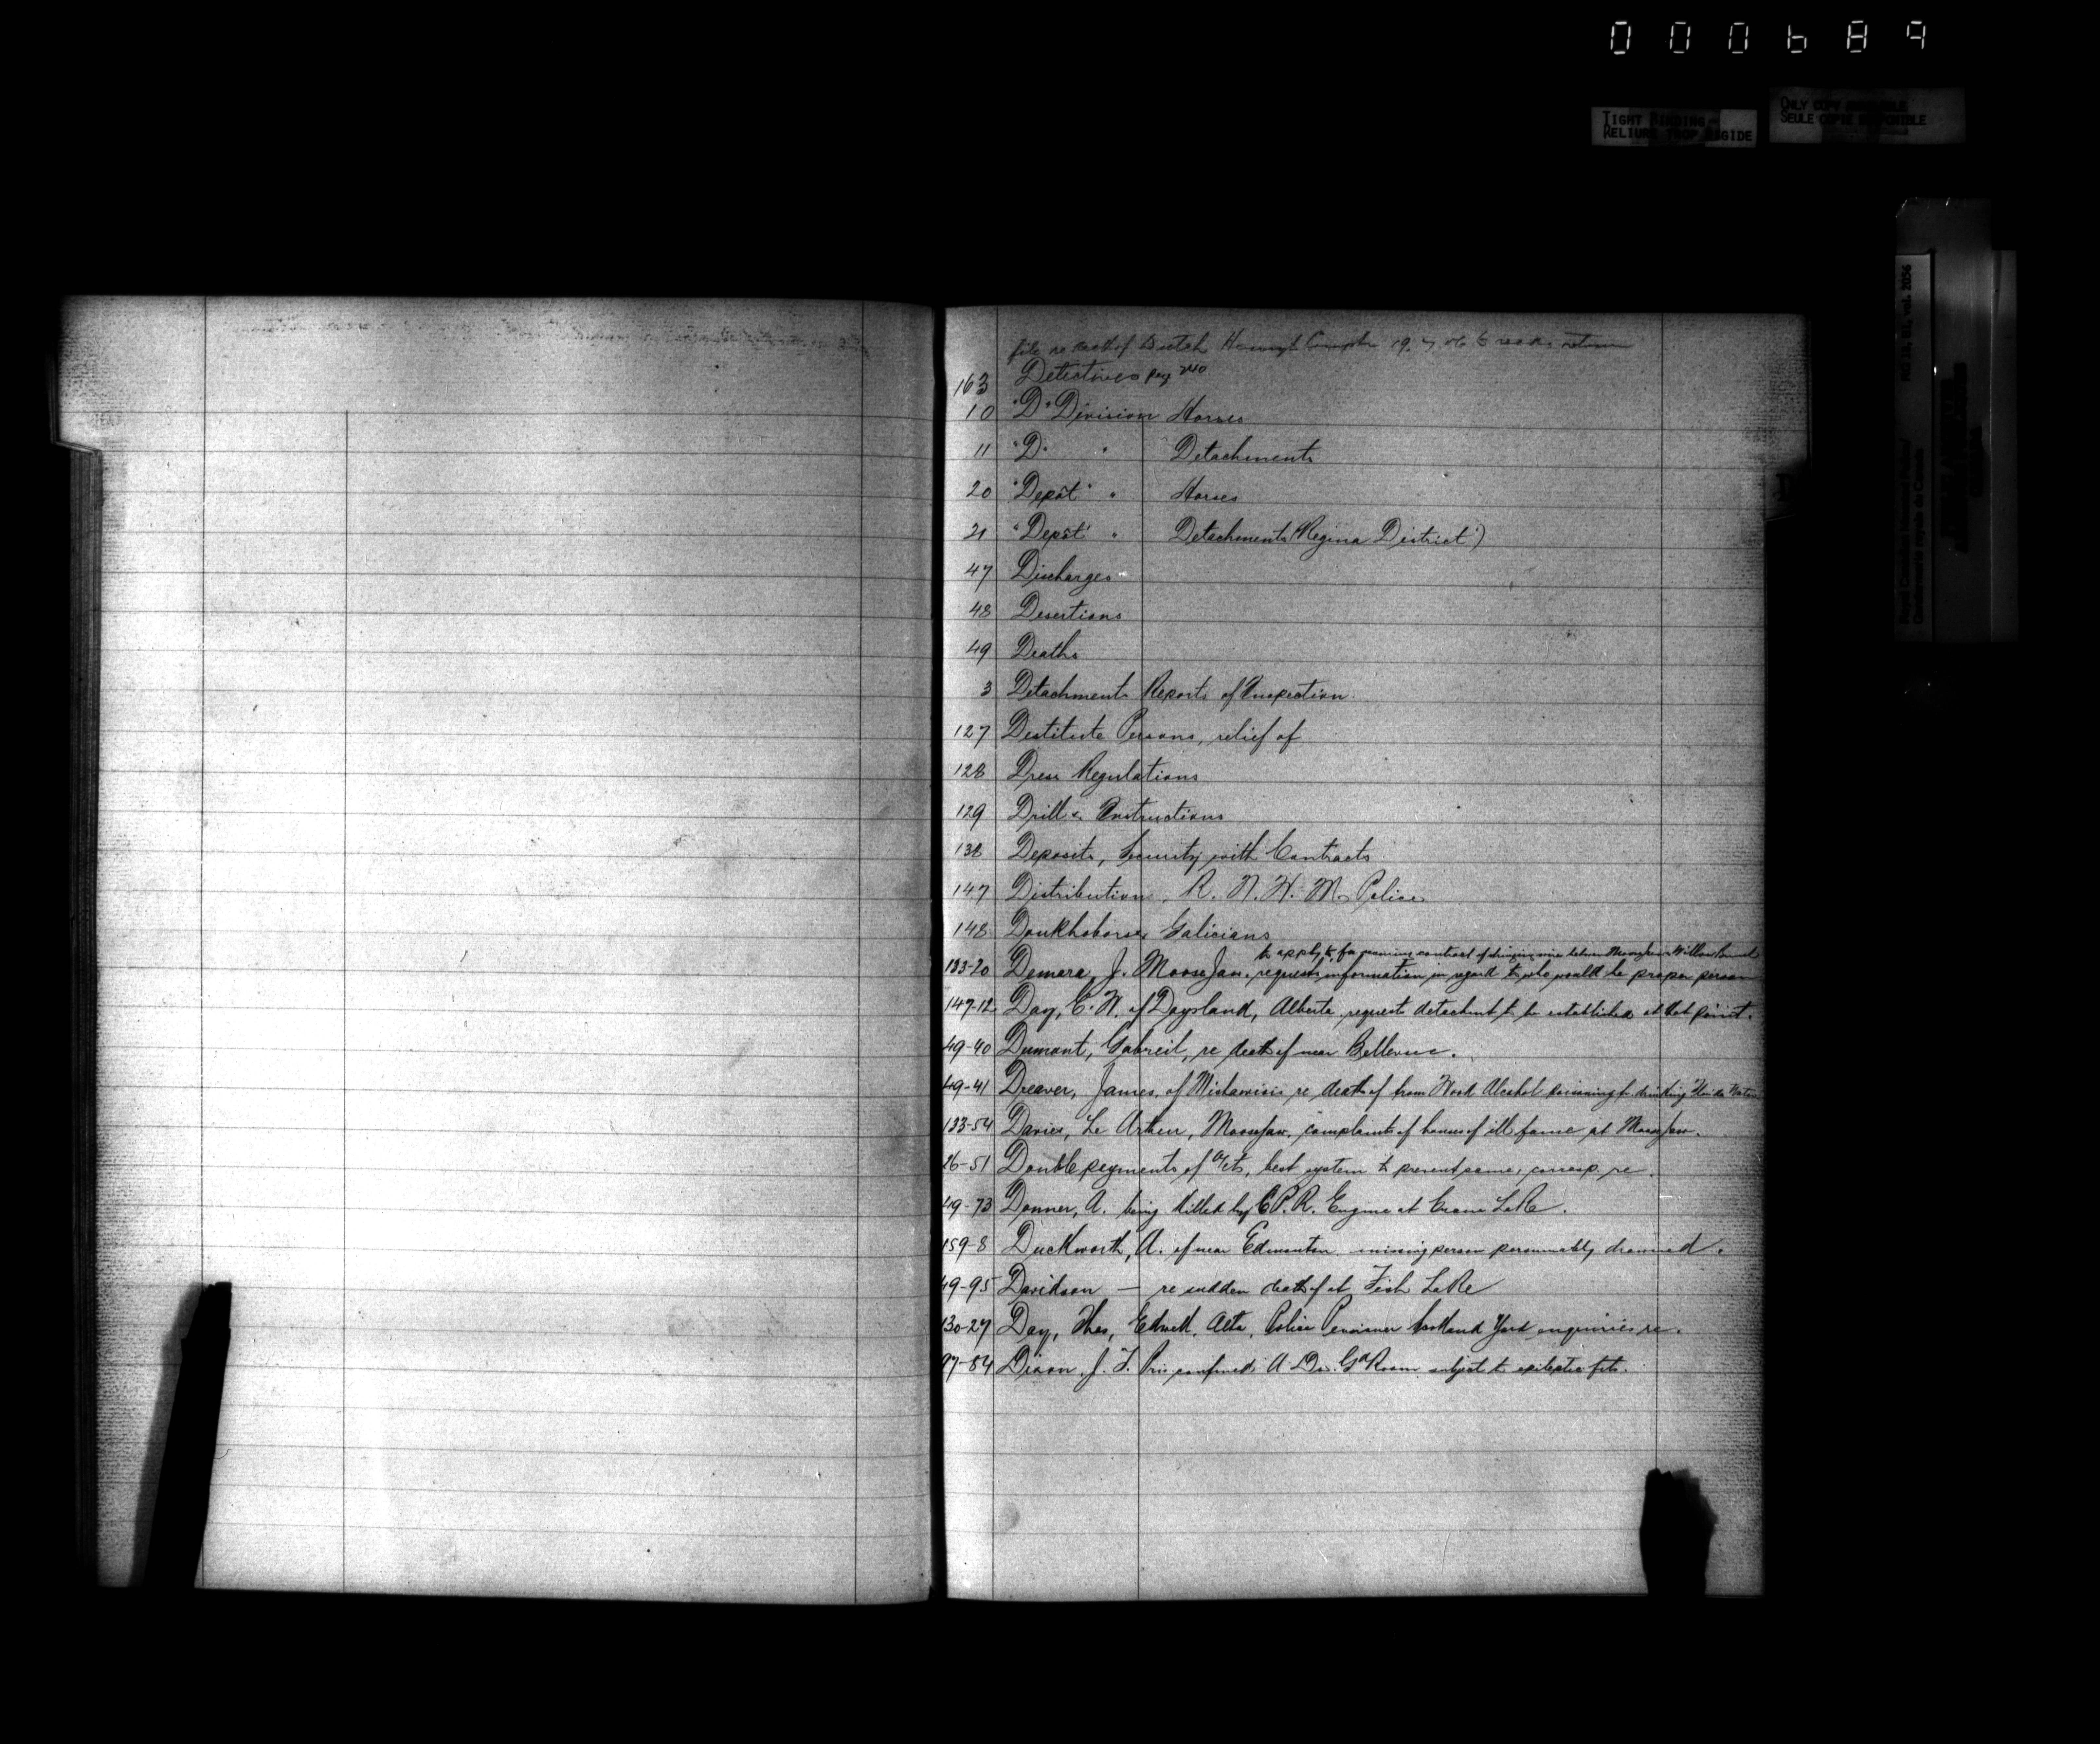 000689
TIGHT BINDING
RELIURE TROP RIGIDE
ONLY COPY AVAILABLE
SEULE COPIE DISPONIBLE
RG 18, B1, vol. 2056
Royal Canadian Mounted Police/
Gendarmerie royale du Canada
file re death of Dutch Henry
163 Detectives page 240
10 "D" Division Horses
11 "D" " Detachments
20 "Depôt" " Horses
21 "Depôt" " Detachments (Regina District)
47 Discharges
48 Desertions
49 Deaths
3 Detachments Reports of Inspection
127 Destitute Persons, relief of
128 Dress Regulations
129 Drill & Instructions
138 Deposits, Security with Contracts
147 Distribution, R. N. W. M. Police
148 Doukhobors & Galicians
to apply to for running contract of between Moosejaw & Willow Bunch
133-20 Demers, J. Moose Jaw. requests information in regard to who would be proper person
147-12 Day, E. W. of Daysland, Alberta, request detachment to be established at that point.
49-40 Dumont, Gabreil, re death of near Bellevue.
49-41 Dreaver, James, of Mistawisis re death of from Wood Alcohol poisoning fr drinking Florida Water
133-54 Davies, Le Arthur, Moosejaw, complaint of houses of ill fame at Moosejaw.
26-51 Double payments of a/cts, best system to prevent same, corresp. re.
49-73 Donner, A. being killed by C.P.R. Engine at Crane Lake.
159-8 Duckworth, A. of near Edmonton missing person presumably drowned.
49-95 Davidson — re sudden death of at Fish Lake
130-27 Day, Thos, Edwell, Alta, Police Pensioner Scotland Yard enquiries re.
97-84 Dixon, J. F. Pris confined A Div. Gd Room subject to epileptic fits.
D